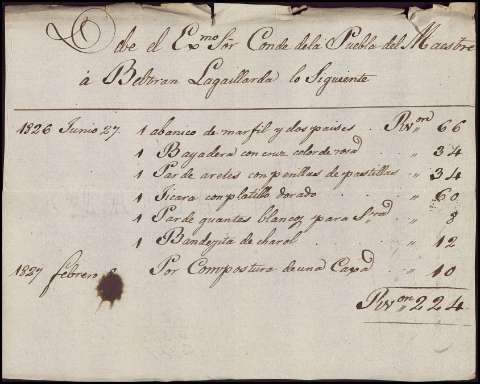 Debe el Exmo Sor Conde dela Puebla del Maestre
á Beltran Lagaillarda lo Siguiente
1826 Junio 27 1 abanico de marfil y dos paises . Rvon " 66
1 Bayadera con cruz color de rosa " 34
1 Par de aretes con perillas de pastillas " 34
1 Jicara con platillo dorado . " 60
1 Par de guantes blancos para Sra " 8
1 Bandejita de charol . " 12
1827 febrero Por Compostura de una Caxa " 10
Rvon " 224